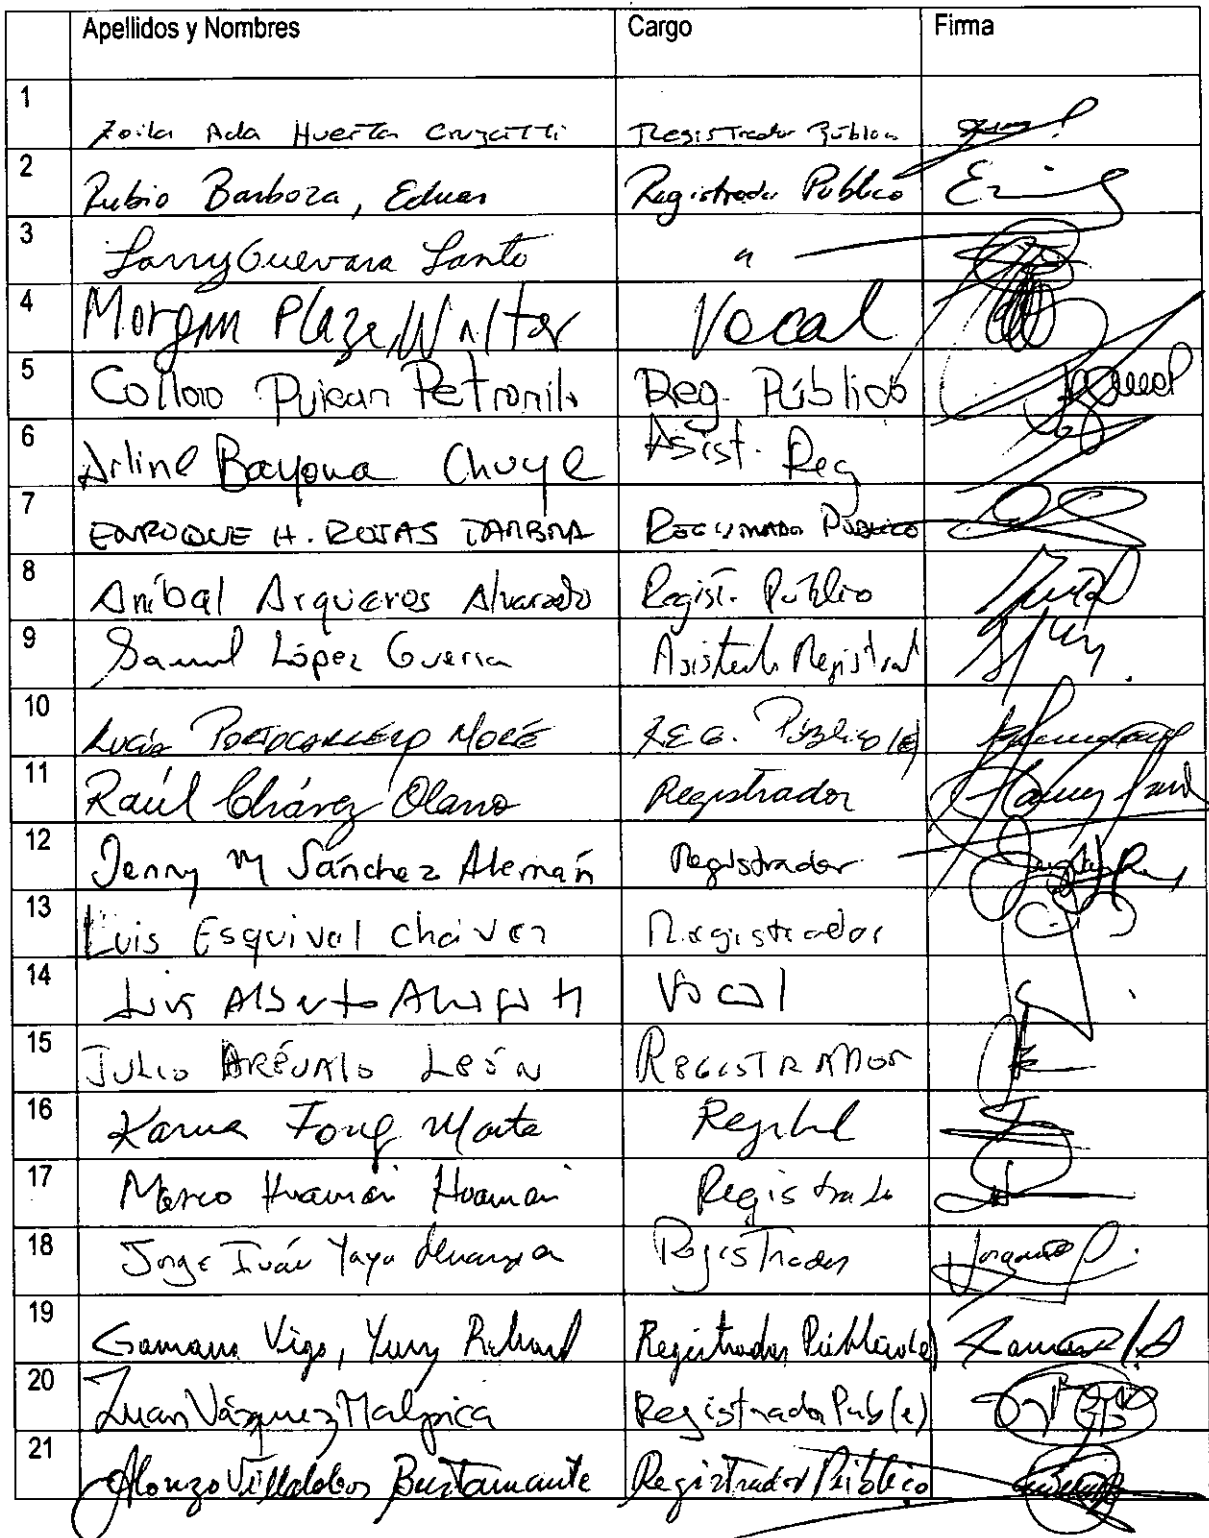 Apellidos y Nombres Cargo Firma
1 Zoila Ada Huerta Cruzatti Registrador Público
2 Rubio Barboza, Eduar Registrador Público
3 Larry Guevara Santo "
4 Morgan Plaza, Walter Vocal
5 Collao Pujean Petronila Reg. Público
6 Arline Bayona Chuye Asist. Reg
7 ENRIQUE H. ROJAS Público
8 Aníbal Arqueros Alvarado Regist. Público
9 Samuel López Guerra Asistente Registral
10 Lucía Portocarrero Moré REG. Público (e)
11 Raúl Chávez Olano Registrador
12 Jenny M Sánchez Alemán Registrador
13 Luis Esquivel Chávez Registrador
14 Luis Alberto Vocal
15 JULIO ARÉVALO LEÓN REGISTRADOR
16 Fong
17 Marco Huamán Huamán Registrado
18 Jorge Iván Yaya Registrador
19 Gamarra Vigo, Yury Richard Registrador Público (e)
20 Juan Vásquez Malpica Registrador Pub (e)
21 Alonzo Villalobos Bustamante Registrador Público